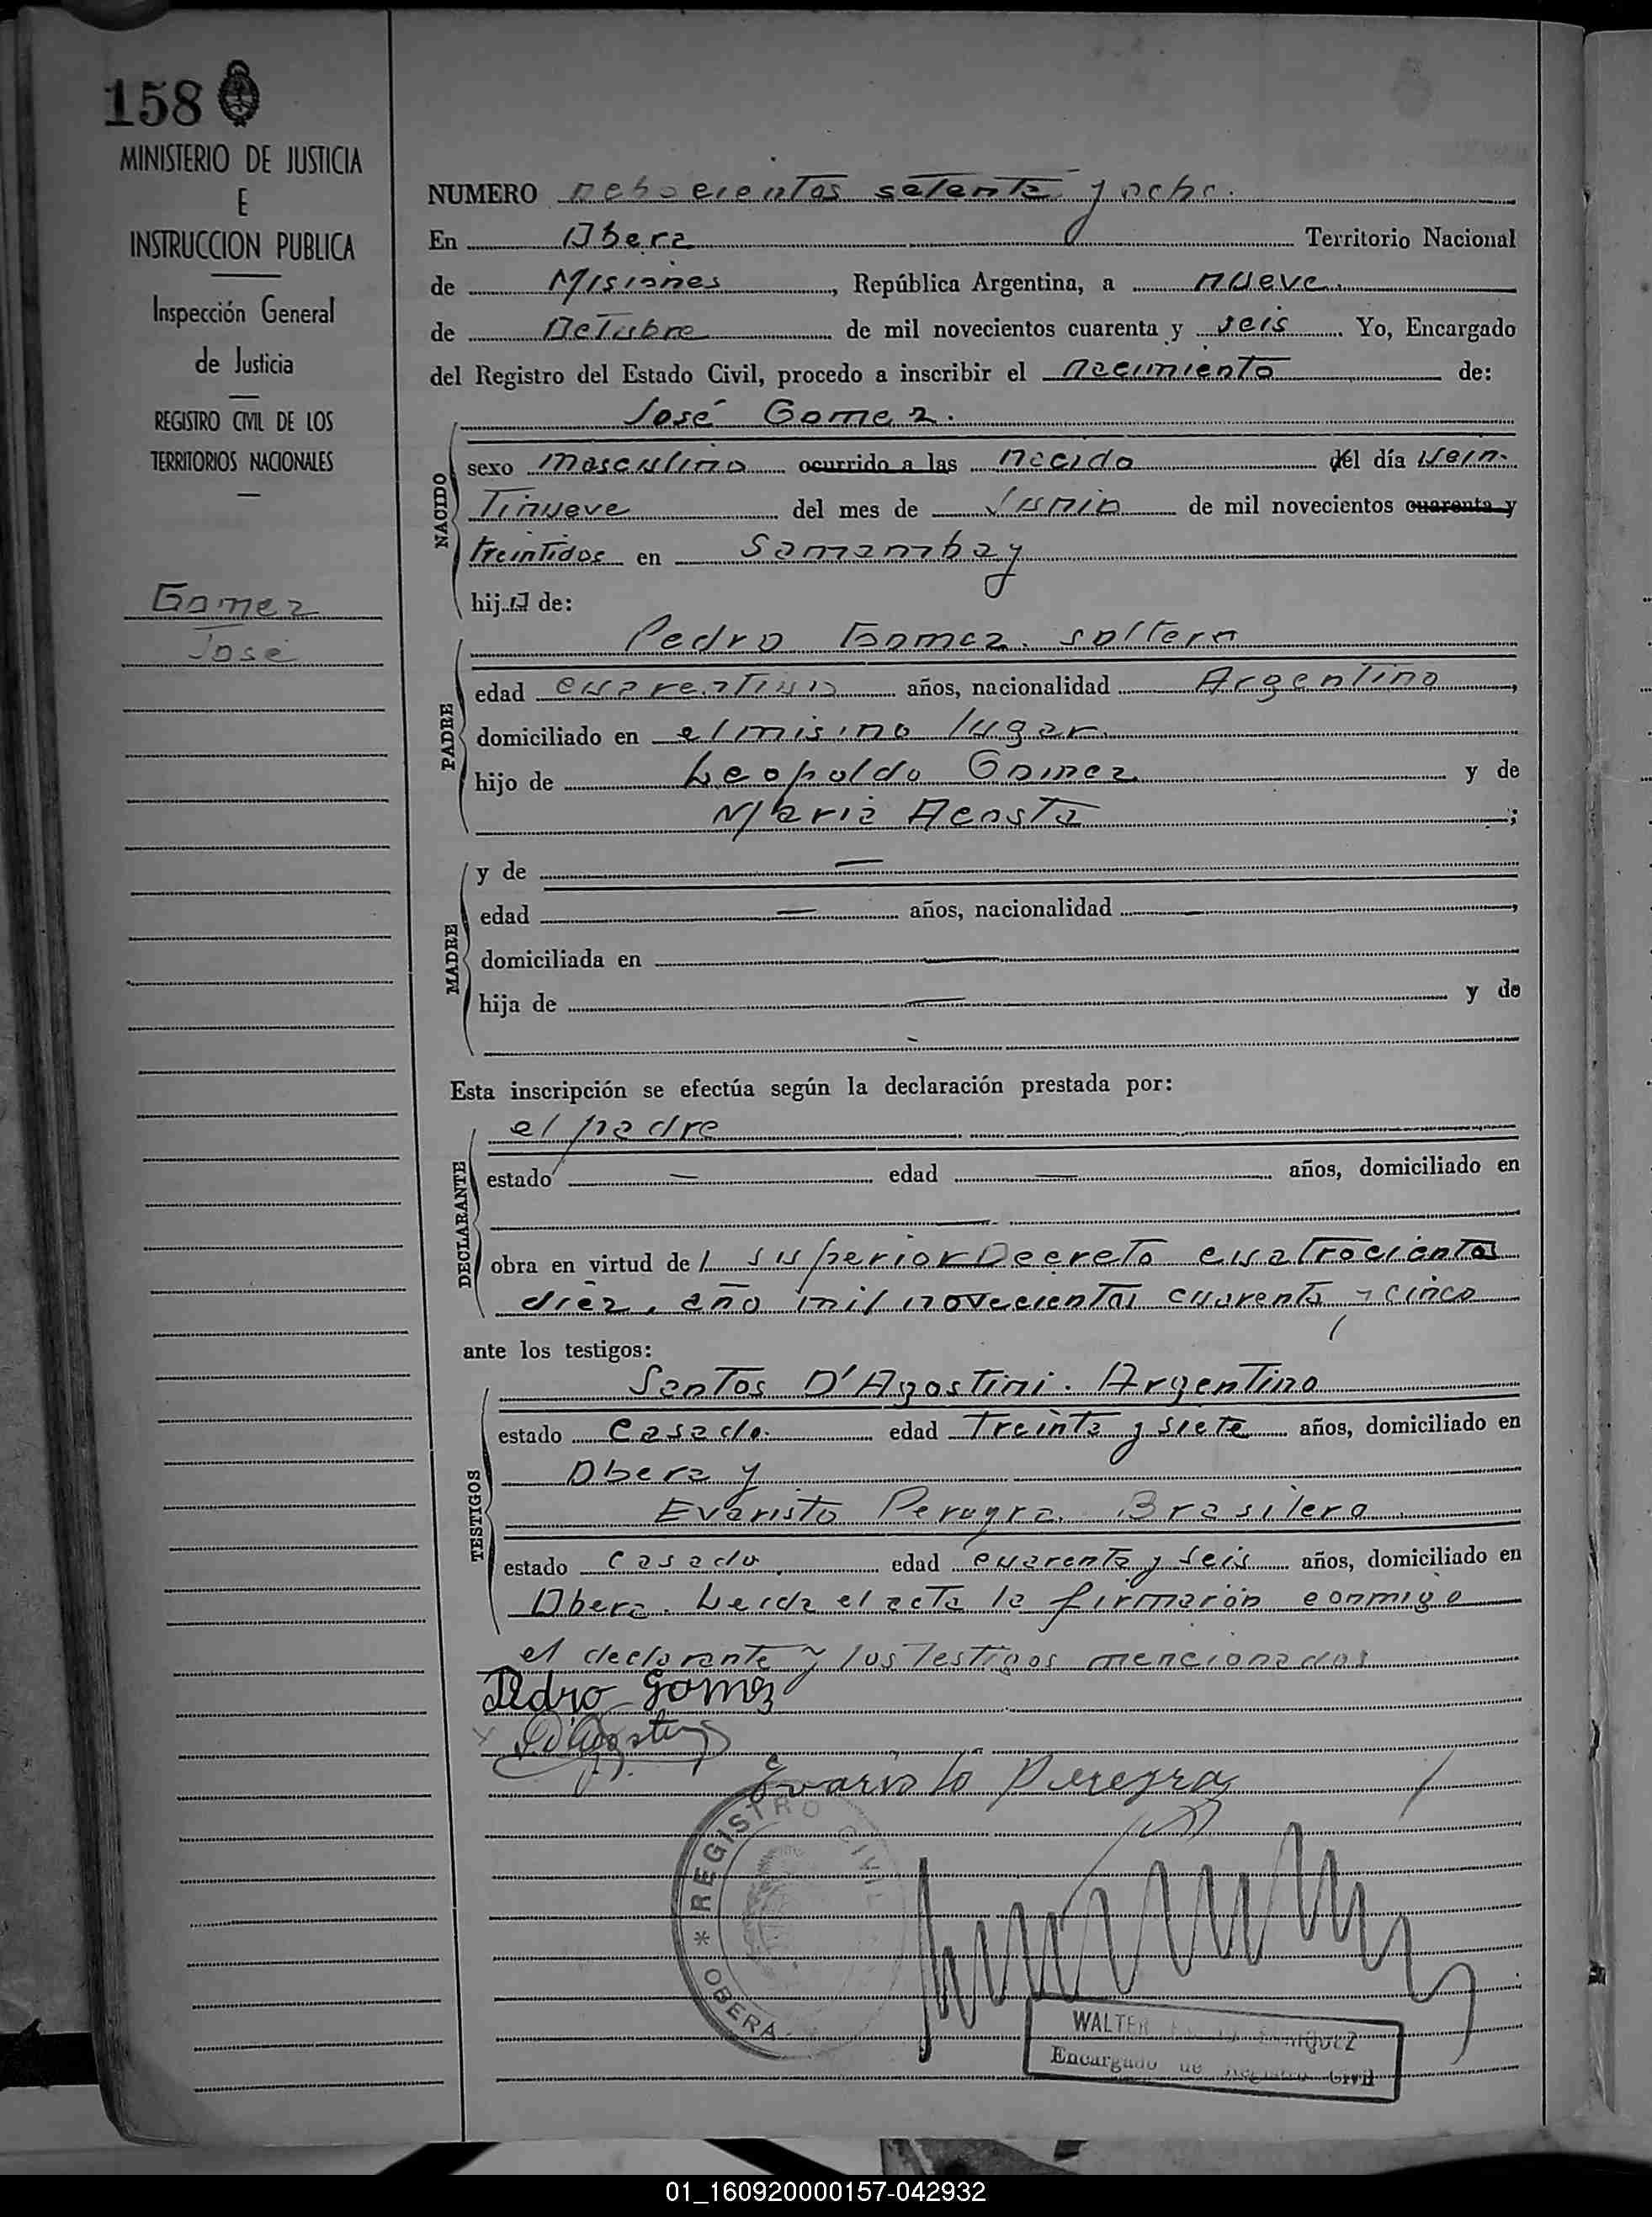 158
MINISTERIO DE JUSTICIA
E
INSTRUCCION PUBLICA
Inspección General
de Justicia
REGISTRO CIVIL DE LOS
TERRITORIOS NACIONALES
Gomez
José
NUMERO ochocientos setenta y ocho.
En Obera Territorio Nacional
de Misiones, República Argentina, a nueve
de Octubre de mil novecientos cuarenta y seis. Yo, Encargado
del Registro del Estado Civil, procedo a inscribir el nacimiento de:
José Gomez.
NACIDO
sexo masculino ocurrido a las nacido del día vein-
tinueve del mes de Junio de mil novecientos cuarenta y
treintidos en Samambay
hijo de:
PADRE
Pedro Gomez. soltero
edad cuarentiun años, nacionalidad Argentino,
domiciliado en el mismo lugar
hijo de Leopoldo Gomez y de
Maria Acosta;
MADRE
y de —
edad — años, nacionalidad —,
domiciliada en —
hija de — y de
Esta inscripción se efectúa según la declaración prestada por:
DECLARANTE
el padre
estado — edad — años, domiciliado en
—
obra en virtud del superior Decreto cuatrocientos
diez, año mil novecientos cuarenta y cinco
ante los testigos:
TESTIGOS
Santos D'Agostini. Argentino
estado casado. edad treinta y siete años, domiciliado en
Obera y
Evaristo Perugra. Brasilero
estado casado edad cuarenta y seis años, domiciliado en
Obera. Leida el acta la firmarón conmigo
el declarante y los testigos mencionados
Pedro Gomez
D'Agostini
Evaristo
REGISTRO CIVIL
* OBERA
WALTER
Encargado de Registro Civil
01_160920000157-042932